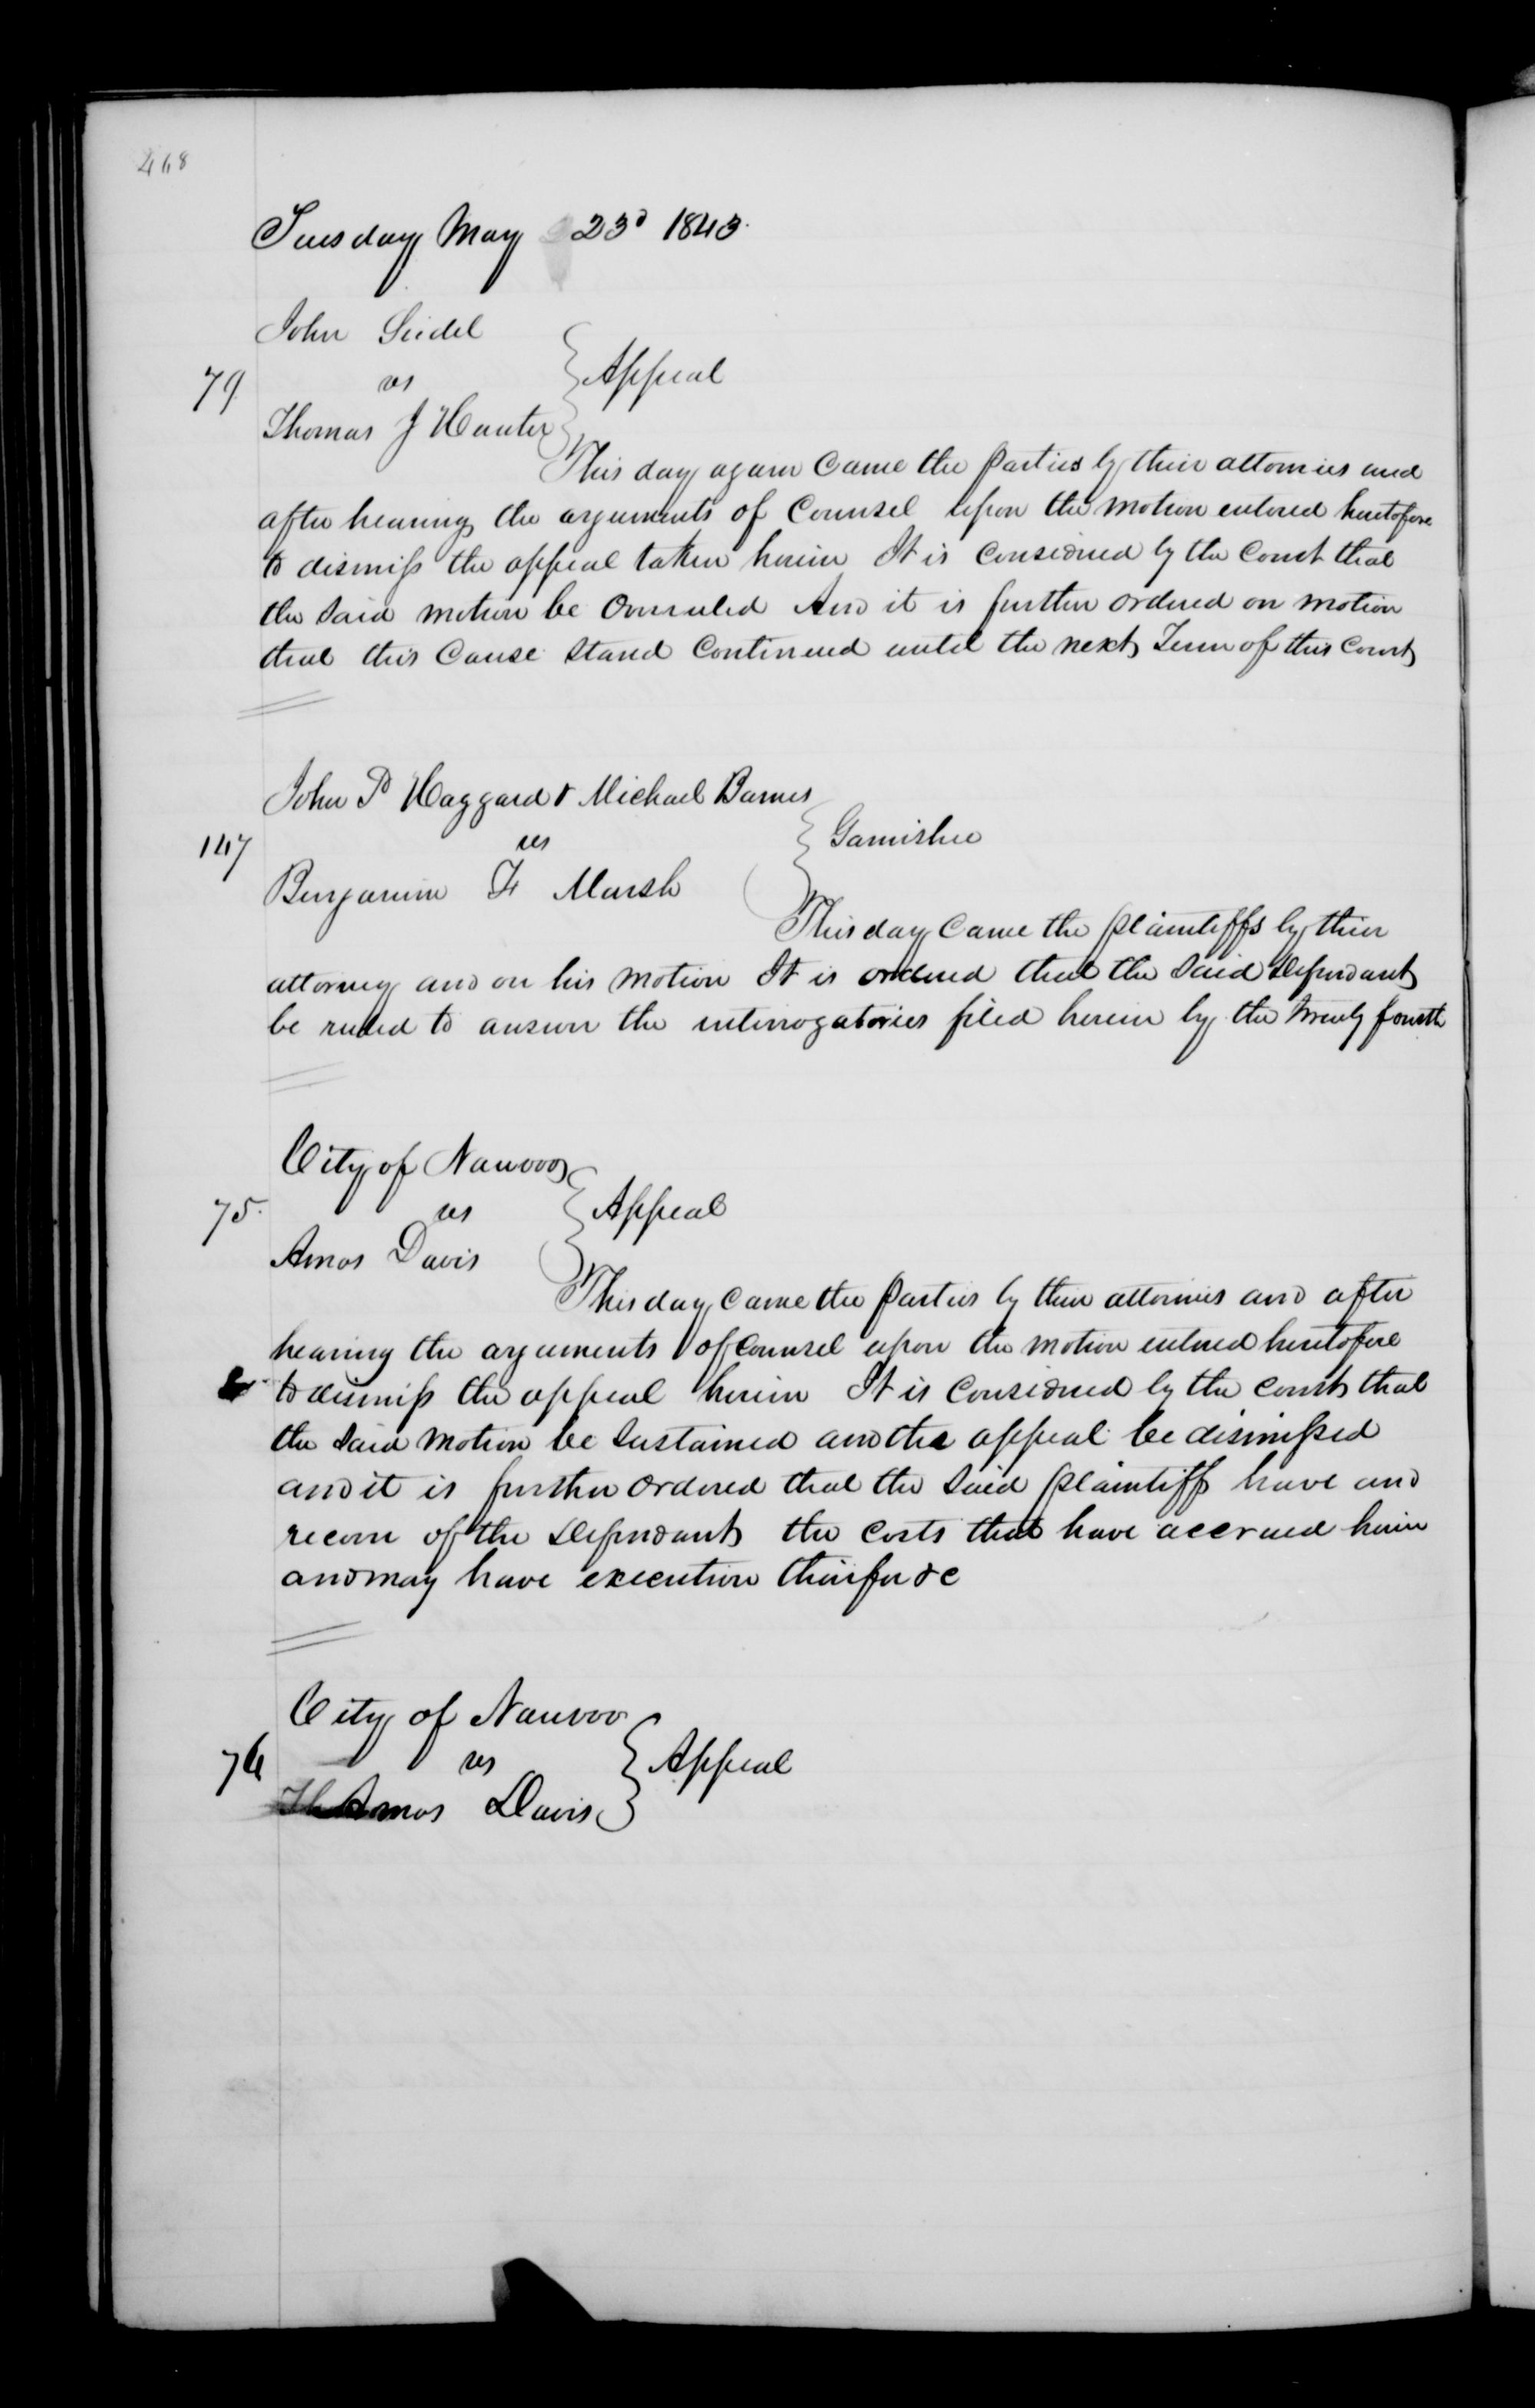 468
Tuesday May 23d 1843.
John Seidel
79 vs } Appeal
Thomas J Hunter
This day again came the parties by their attornies and
after hearing the arguments of Counsel upon the motion entered heretofore
to dismiss the appeal taken herein It is considered by the Court that
the said motion be Overruled And it is further ordered on motion
that this Cause stand Continued until the next Term of this Court
John P Haggard & Michael Barnes
147 vs } Garnishee
Benjamin F Marsh
This day Came the plaintiffs by their
attorney and on his motion It is ordered that the said Defendant
be ruled to answer the interrogatories filed herein by the twenty fourth
City of Nauvoo
75. vs } Appeal
Amos Davis
This day Came the parties by their attornies and after
hearing the arguments of Counsel upon the motion entered heretofore
to dismiss the appeal herein It is Considered by the Court that
the said motion be sustained and the appeal be dismissed
and it is further ordered that the said plaintiff have and
recover of the Defendant the Costs that have accrued herein
and may have execution therefor &c
City of Nauvoo
76 vs } Appeal
Amos Davis